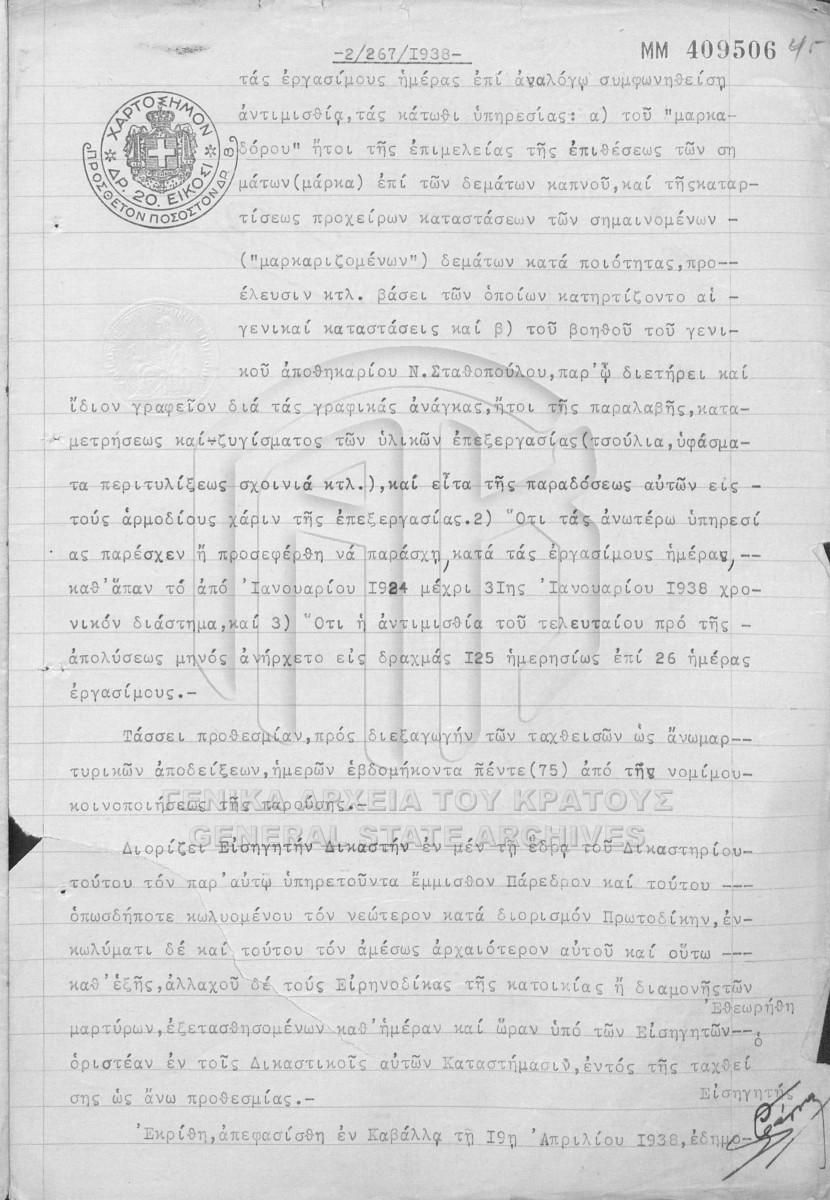 -2/267/I938-
ΜΜ 409506
45
τάς ἐργασίμους ἡμέρας ἐπί ἀναλόγῳ συμφωνηθείσῃ
ἀντιμισθίᾳ,τάς κάτωθι ὑπηρεσίας: α) τοῦ "μαρκα-
δόρου" ἤτοι τῆς ἐπιμελείας τῆς ἐπιθέσεως τῶν ση
μάτων(μάρκα) ἐπί τῶν δεμάτων καπνοῦ,καί τῆςκαταρ-
τίσεως προχείρων καταστάσεων τῶν σημαινομένων -
("μαρκαριζομένων") δεμάτων κατά ποιότητας,προ--
έλευσιν κτλ. βάσει τῶν ὁποίων κατηρτίζοντο αἱ -
γενικαί καταστάσεις καί β) τοῦ βοηθοῦ τοῦ γενι-
κοῦ ἀποθηκαρίου Ν.Σταθοπούλου,παρ'ᾧ διετήρει καί
ἴδιον γραφεῖον διά τάς γραφικάς ἀνάγκας,ἤτοι τῆς παραλαβῆς,κατα-
μετρήσεως καί ζυγίσματος τῶν ὑλικῶν ἐπεξεργασίας(τσούλια,ὑφάσμα-
τα περιτυλίξεως σχοινιά κτλ.),καί εἶτα τῆς παραδόσεως αὐτῶν εἰς -
τούς ἁρμοδίους χάριν τῆς ἐπεξεργασίας.2) Ὅτι τάς ἀνωτέρω ὑπηρεσί
ας παρέσχεν ἤ προσεφέρθη νά παράσχῃ,κατά τάς ἐργασίμους ἡμέρας,--
καθ'ἅπαν τό ἀπό Ἰανουαρίου I924 μέχρι 3Iης Ἰανουαρίου I938 χρο-
νικόν διάστημα,καί 3) Ὅτι ἡ ἀντιμισθία τοῦ τελευταίου πρό τῆς -
ἀπολύσεως μηνός ἀνήρχετο εἰς δραχμάς I25 ἡμερησίως ἐπί 26 ἡμέρας
ἐργασίμους.-
Τάσσει προθεσμίαν,πρός διεξαγωγήν τῶν ταχθεισῶν ὡς ἄνωμαρ--
τυρικῶν ἀποδείξεων,ἡμερῶν ἑβδομήκοντα πέντε(75) ἀπό τῆς νομίμου-
κοινοποιήσεως τῆς παρούσης.-
Διορίζει Εἰσηγητήν Δικαστήν ἐν μέν τῇ ἕδρᾳ τοῦ Δικαστηρίου-
τούτου τόν παρ'αὐτῷ ὑπηρετοῦντα ἔμμισθον Πάρεδρον καί τούτου ---
ὁπωσδήποτε κωλυομένου τόν νεώτερον κατά διορισμόν Πρωτοδίκην,ἐν-
κωλύματι δέ καί τούτου τόν ἀμέσως ἀρχαιότερον αὐτοῦ καί οὕτω ---
καθ'ἑξῆς,ἀλλαχοῦ δέ τούς Εἰρηνοδίκας τῆς κατοικίας ἤ διαμονῆςτῶν
Ἐθεωρήθη
μαρτύρων,ἐξετασθησομένων καθ'ἡμέραν καί ὥραν ὑπό τῶν Εἰσηγητῶν--
ὁ
ὁριστέαν ἐν τοῖς Δικαστικοῖς αὐτῶν Καταστήμασιν,ἐντός τῆς ταχθεί
Εἰσηγητής
σης ὡς ἄνω προθεσμίας.-
Ἐκρίθη,ἀπεφασίσθη ἐν Καβάλλᾳ τῇ I9ῃ Ἀπριλίου I938,ἐδημο-
ΧΑΡΤΟΣΗΜΟΝ
ΔΡ. 20. ΕΙΚΟΣΙ
ΠΡΟΣΘΕΤΟΝ ΠΟΣΟΣΤΟΝ ΔΡ 8
ΓΕΝΙΚΑ ΑΡΧΕΙΑ ΤΟΥ ΚΡΑΤΟΥΣ
GENERAL STATE ARCHIVES